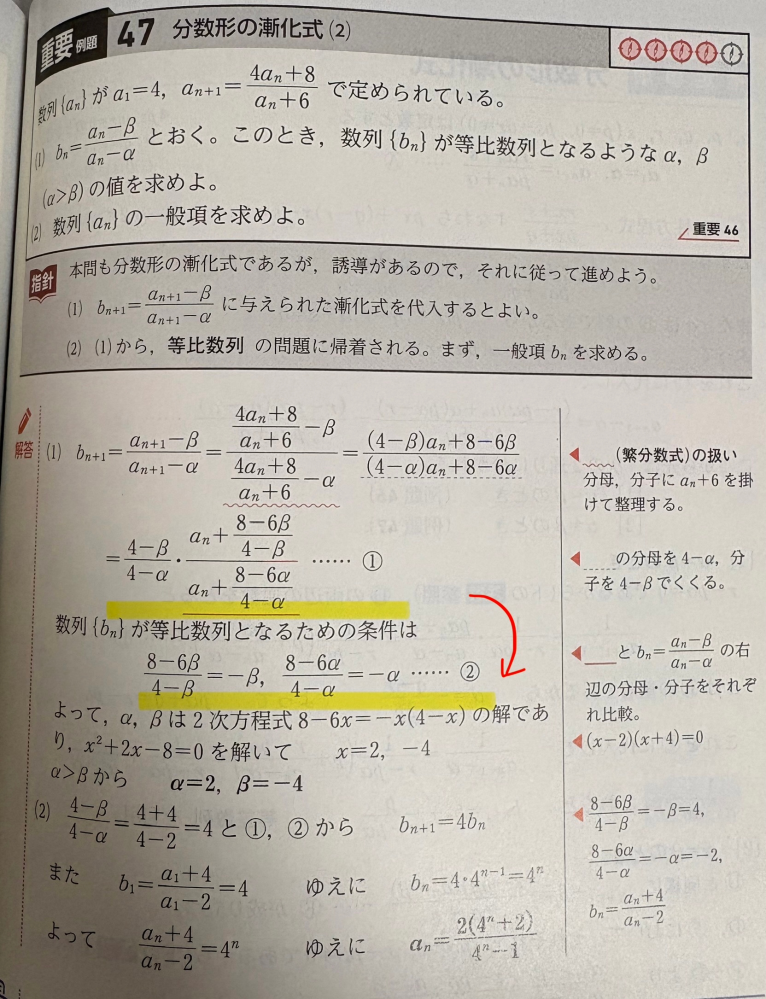 重要 例題 47 分数形の漸化式 (2)
数列 {aₙ} が a₁=4, aₙ₊₁=(4aₙ+8)/(aₙ+6) で定められている。
(1) bₙ=(aₙ−β)/(aₙ−α) とおく。このとき，数列 {bₙ} が等比数列となるような α, β
(α>β) の値を求めよ。
(2) 数列 {aₙ} の一般項を求めよ。
重要 46
指針 本問も分数形の漸化式であるが，誘導があるので，それに従って進めよう。
(1) bₙ₊₁=(aₙ₊₁−β)/(aₙ₊₁−α) に与えられた漸化式を代入するとよい。
(2) (1)から，等比数列 の問題に帰着される。まず，一般項 bₙ を求める。
解答 (1) bₙ₊₁=(aₙ₊₁−β)/(aₙ₊₁−α)=((4aₙ+8)/(aₙ+6)−β)/((4aₙ+8)/(aₙ+6)−α)=((4−β)aₙ+8−6β)/((4−α)aₙ+8−6α)
=(4−β)/(4−α)・(aₙ+(8−6β)/(4−β))/(aₙ+(8−6α)/(4−α)) …… ①
数列 {bₙ} が等比数列となるための条件は
(8−6β)/(4−β)=−β, (8−6α)/(4−α)=−α …… ②
よって，α, β は 2 次方程式 8−6x=−x(4−x) の解であ
り，x²+2x−8=0 を解いて x=2, −4
α>β から α=2, β=−4
(2) (4−β)/(4−α)=(4+4)/(4−2)=4 と ①，② から bₙ₊₁=4bₙ
また b₁=(a₁+4)/(a₁−2)=4 ゆえに bₙ=4・4ⁿ⁻¹=4ⁿ
よって (aₙ+4)/(aₙ−2)=4ⁿ ゆえに aₙ=2(4ⁿ+2)/(4ⁿ−1)
◀ (繁分数式)の扱い
分母，分子に aₙ+6 を掛
けて整理する。
◀ の分母を 4−α，分
子を 4−β でくくる。
◀ と bₙ=(aₙ−β)/(aₙ−α) の右
辺の分母・分子をそれぞ
れ比較。
◀(x−2)(x+4)=0
◀ (8−6β)/(4−β)=−β=4,
(8−6α)/(4−α)=−α=−2,
bₙ=(aₙ+4)/(aₙ−2)